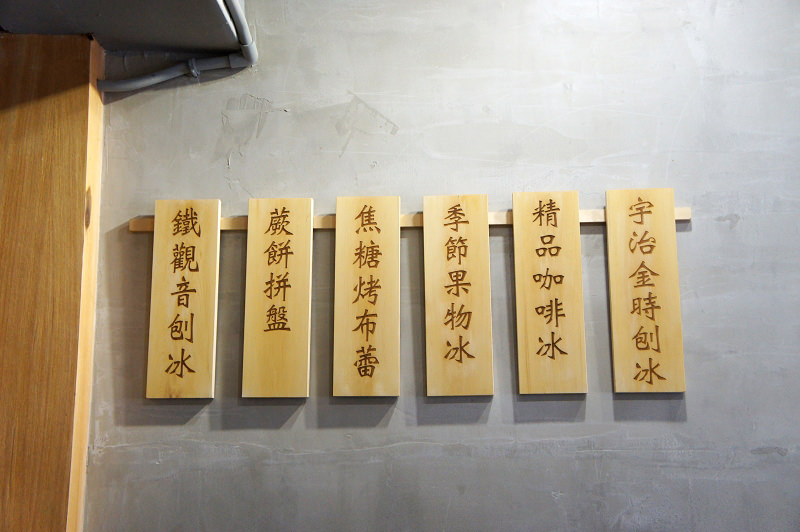 宇治金時刨冰
精品咖啡冰
季節果物冰
焦糖烤布蕾
蕨餅拼盤
鐵觀音刨冰